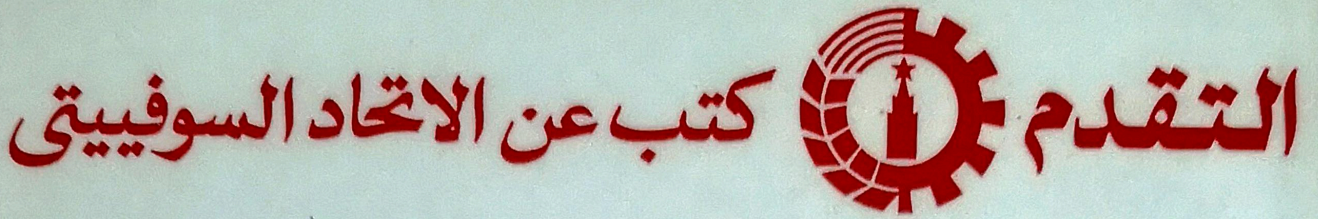 التقدم كتب عن الاتحاد السوفييتى